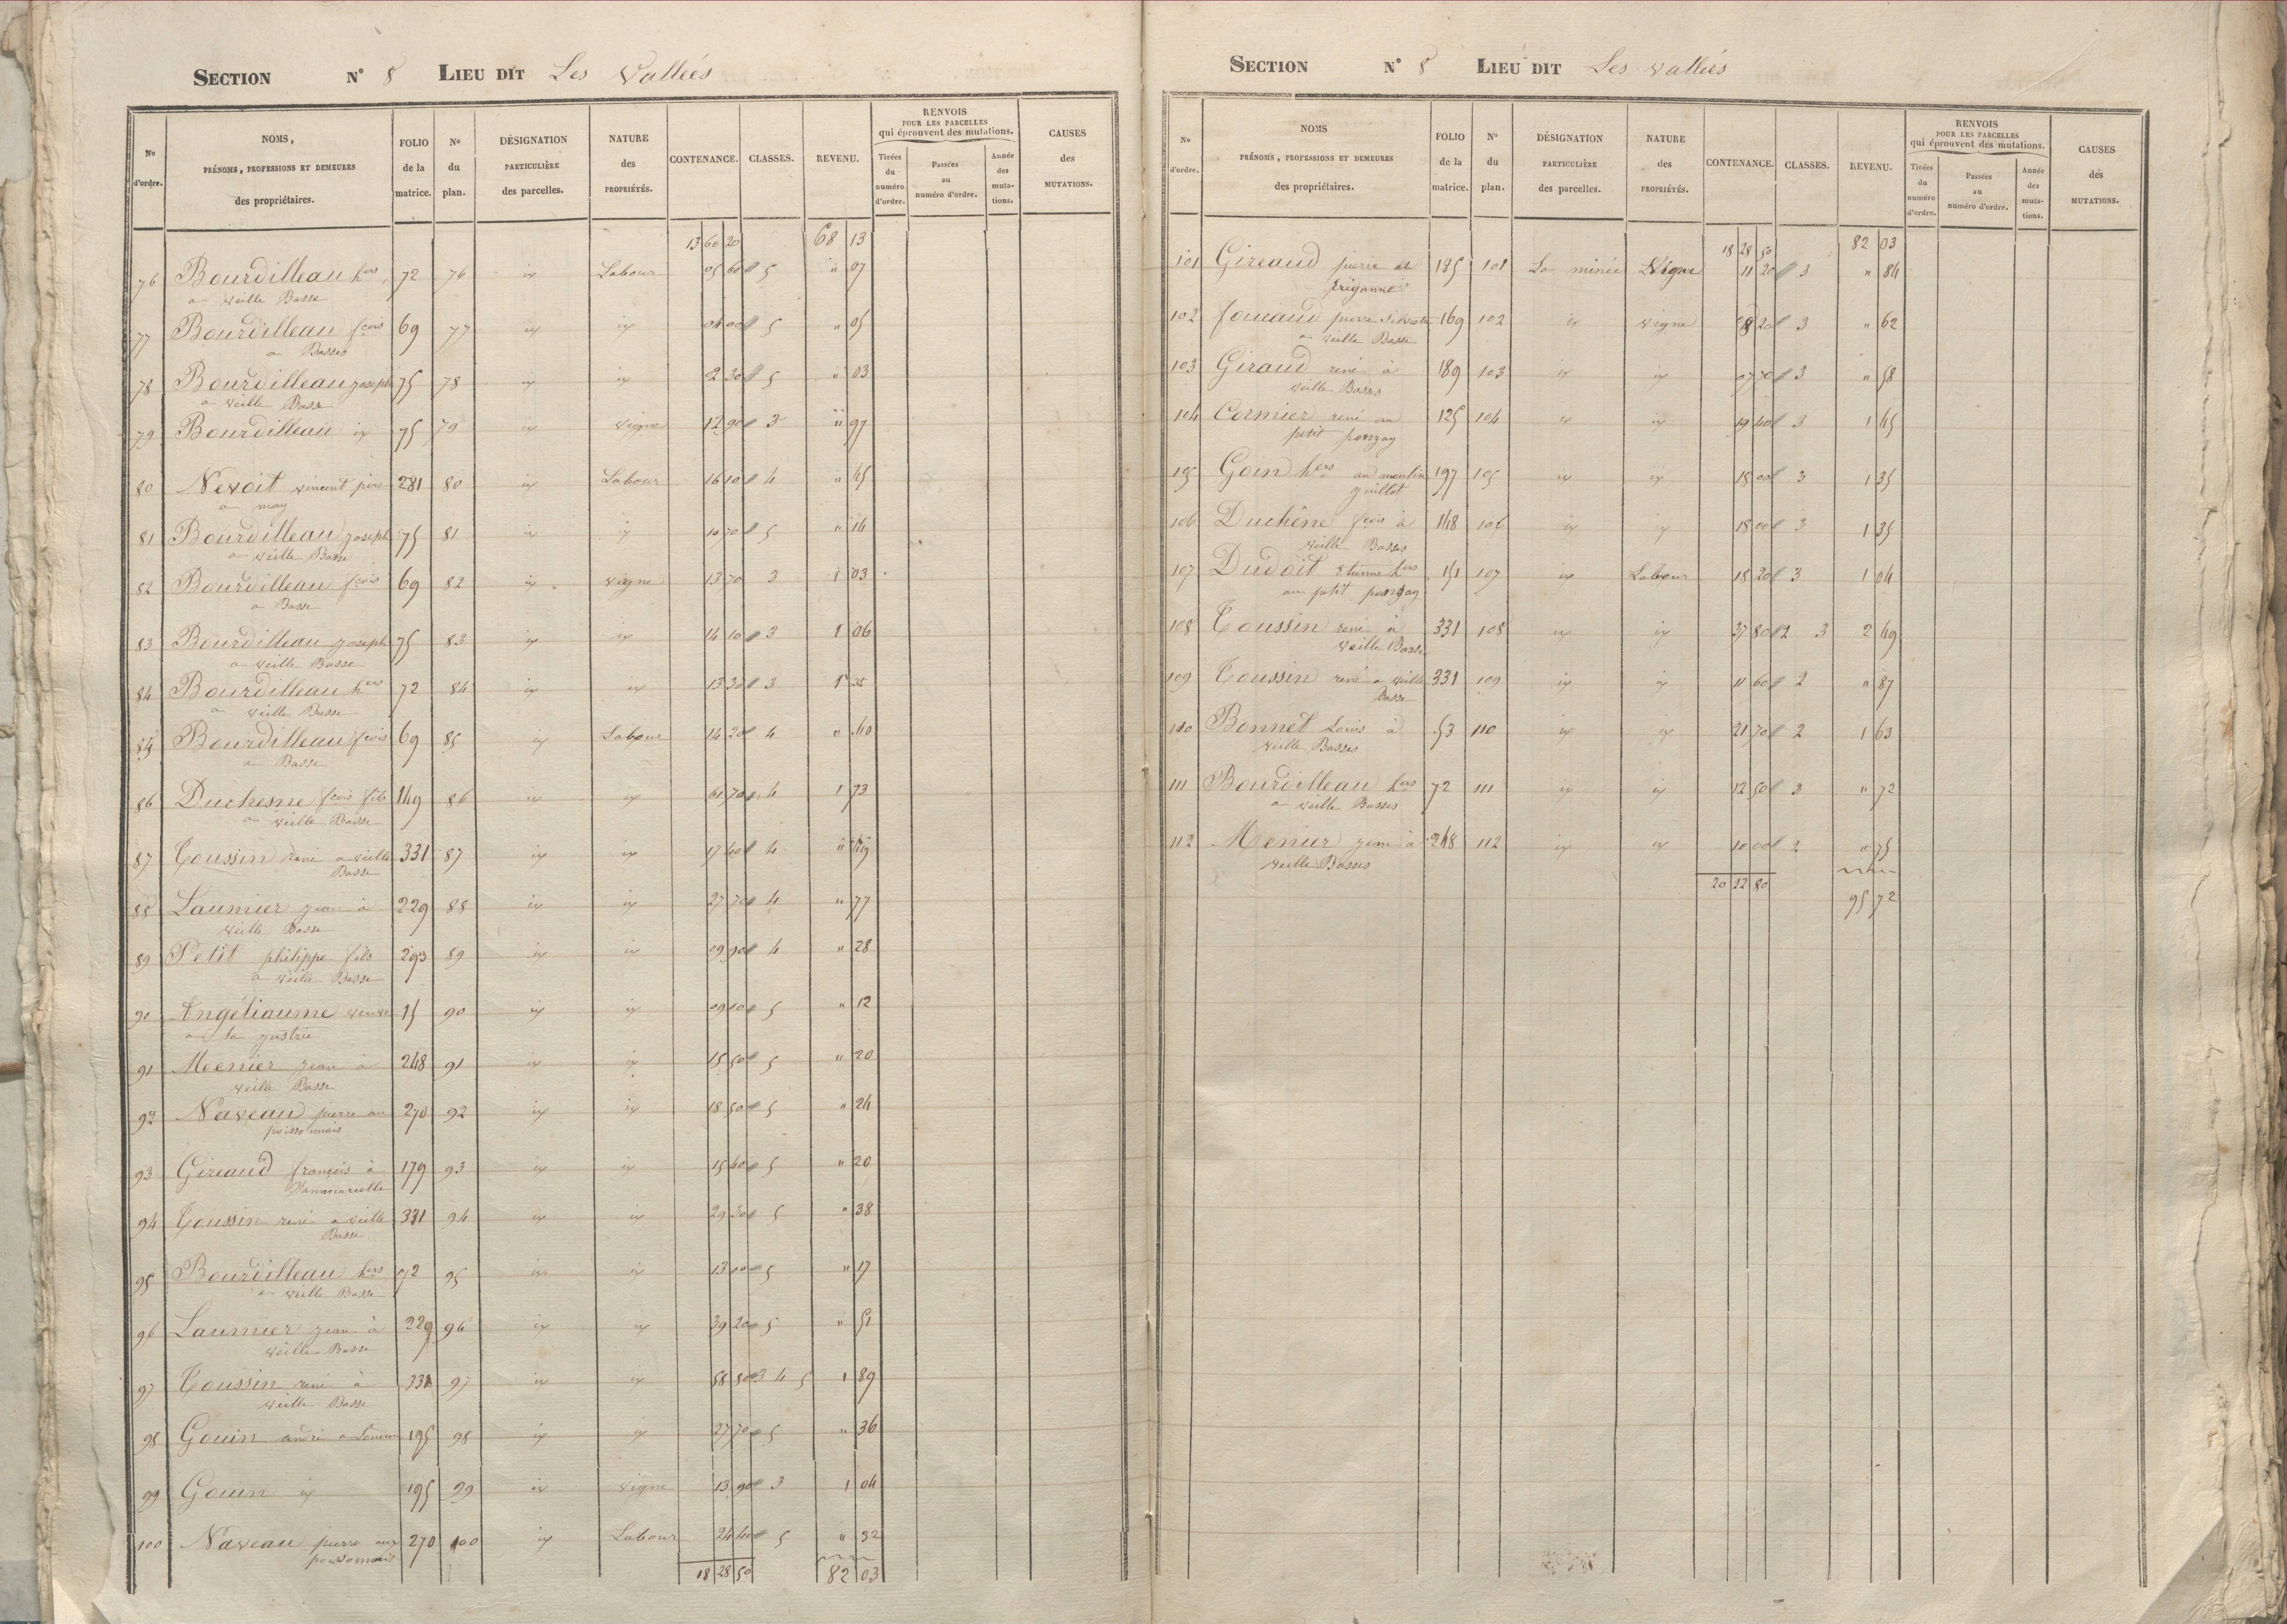 SECTION N° 8 LIEU DIT Les Valleés
N° d'ordre. NOMS, PRÉNOMS, PROFESSIONS ET DEMEURES des propriétaires. FOLIO de la matrice. N° du plan. DÉSIGNATION PARTICULIÈRE des parcelles. NATURE des PROPRIÉTÉS. CONTENANCE. CLASSES. REVENU. RENVOIS POUR LES PARCELLES qui éprouvent des mutations. Tirées du numéro d'ordre. Passées au numéro d'ordre. Année des mutations. CAUSES des MUTATIONS.
13 60 20 68 13
76 Bourdilleau hers 72 76 ix Labour 05 60 5 " 07
a veille Basse
77 Bourdilleau fçois 69 77 ix ix 04 00 5 " 05
a Basses
78 Bourdilleau joseph 75 78 ix ix 2 30 5 " 03
a veille Basse
79 Bourdilleau ix 75 79 ix vigne 12 90 3 " 97
80 Nevoit vincent père 281 80 ix Labour 16 10 4 " 45
a may
81 Bourdilleau joseph 75 81 ix ix 10 70 5 " 14
a veille Basse
82 Bourdilleau fçois 69 82 ix vigne 13 70 3 1 03
a Basse
83 Bourdilleau joseph 75 83 ix ix 14 10 3 1 06
a veille Basse
84 Bourdilleau hers 72 84 ix ix 13 30 3 1 "
a veille Basse
85 Bourdilleau fçois 69 85 ix Labour 14 20 4 " 40
a Basse
86 Duchesne fçois fils 149 86 ix ix 61 70 4 1 73
a veille Basse
87 Toussin rené a veille 331 87 ix ix 17 40 4 " 49
Basse
88 Laumier jean à 229 88 ix ix 27 70 4 " 77
veille Basse
89 Petit philippe fils 293 89 ix ix 09 90 4 " 28
a veille Basse
90 Angéliaume veuve 15 90 ix ix 09 00 5 " 12
a la justrie
91 Menier jean à 248 91 ix ix 15 50 5 " 20
veille Basse
92 Naveau pierre au 270 92 ix ix 18 50 5 " 24
poissonnais
93 Gireaud françois à 179 93 ix ix 15 40 5 " 20
94 Toussin rené a veille 331 94 ix ix 29 30 5 " 38
Basse
95 Bourdilleau hers 72 95 ix ix 13 00 5 " 17
a veille Basse
96 Laumier jean à 229 96 ix ix 39 20 5 " 51
veille Basse
97 Toussin rené à 331 97 ix ix 58 50 3 4 5 1 89
veille Basse
98 Gouin andré a 195 98 ix ix 27 70 5 " 36
99 Gouin ix 195 99 ix vigne 13 90 3 1 04
100 Naveau pierre aux 270 100 ix Labour 24 40 5 " 32
poissonnais
18 28 50 82 03
SECTION N° 8 LIEU DIT Les valliés
N° d'ordre. NOMS PRÉNOMS, PROFESSIONS ET DEMEURES des propriétaires. FOLIO de la matrice. N° du plan. DÉSIGNATION PARTICULIÈRE des parcelles. NATURE des PROPRIÉTÉS. CONTENANCE. CLASSES. REVENU. RENVOIS POUR LES PARCELLES qui éprouvent des mutations. Tirées du numéro d'ordre. Passées au numéro d'ordre. Année des mutations. CAUSES des MUTATIONS.
18 28 50 82 03
101 Gireaud pierre 185 101 La minée Vigne 11 20 3 " 84
102 fouaud pierre silvestre 169 102 ix vigne 08 20 3 " 62
a veille Basse
103 Giraud rené à 189 103 ix ix 07 70 3 " 58
veille Basses
104 Cormier rené au 125 104 ix ix 19 40 3 1 45
petit ponzay
105 Goin hers au moulin 197 105 ix ix 18 00 3 1 35
guillot
106 Duchêne fçois à 148 106 ix ix 18 00 3 1 35
veille Basses
107 Dudoit etienne hers 151 107 ix Labour 15 20 3 1 04
au petit ponzay
108 Toussin rené à 331 108 ix ix 37 80 2 3 2 49
veille Basse
109 Toussin rené a veille 331 109 ix ix 11 60 2 " 87
Basse
110 Bonnet Louis à 53 110 ix ix 21 70 2 1 63
veille Basses
111 Bourdilleau hers 72 111 ix ix 12 50 3 " 72
a veille Basses
112 Menier jean à 248 112 ix ix 10 00 2 " 75
veille Basses
20 22 80
95 72